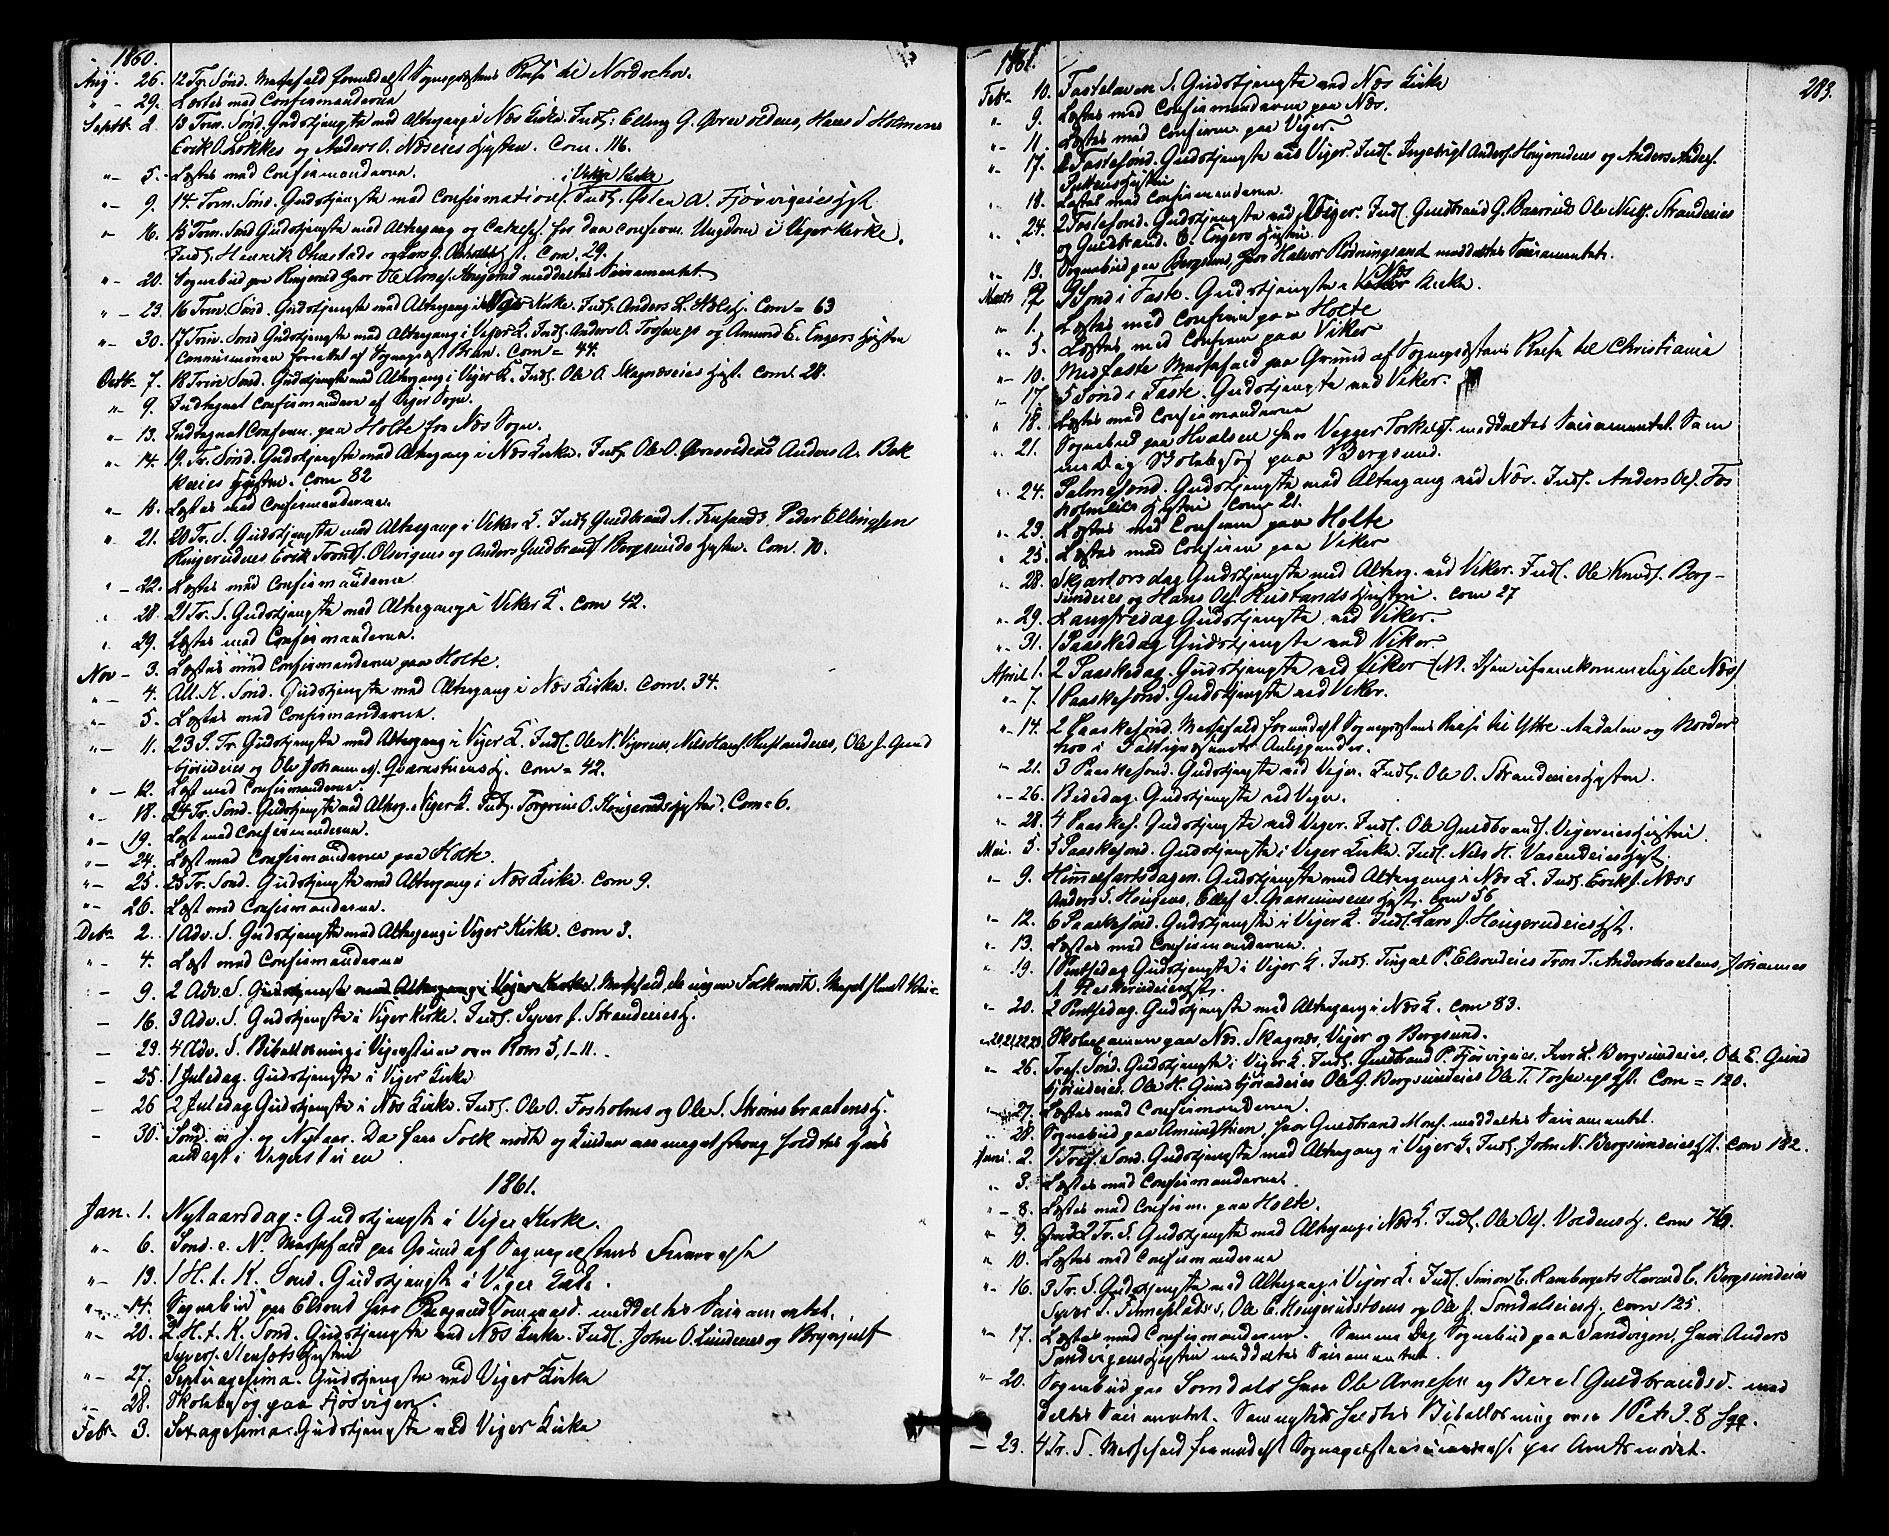 1860.
Aug. 26. 12 Tr. Sönd. Messefald formedelst Sognepræstens Reise til Nordrehov.
" - 29. Læstes med Confirmanderne
Septbr. 2. 13 Trin. Sönd. Gudstjeneste med Altergang i Næs Kirke. Indl. Elling G. Örevoldens, Hans Holmens
Erik O. Lökkes og Anders O. Næseies Hustru. Com. 116.
" - 5. Læstes med Confirmanderne.
i Viker Kirke
" - 9. 14. Trin. Sönd. Gudstjeneste med Confirmation. Indl. Østen A. Fjösvigeies Hust
" - 16. 15 Trin. Sönd Gudstjeneste med Altergang og Cateches. for den confirm. Ungdom i Viger Kirke.
Indl. Henrik og Lars G. Com. 29.
" - 20. Sognebud paa hvor Ole Arnes. meddeltes Sacramentet
" - 23. 16 Trin. Sönd. Gudstjeneste med Altergang i Næs Kirke. Indl. Anders L. Com = 63
" - 30. 17 Trin Sönd Gudstjeneste med Altergang i Viger K. Indl. Anders O. Torsbergs og Amund E. Engers Hustru
Communionen forrettet af Sognepræst Bræn. Com = 44.
Octbr 7. 18 Trin Sönd. Gudstjeneste med Altergang i Viger K. Indl. Ole O. Skagnæseies Hust. Com. 28.
" - 9. Indtegnet Confirmanderne af Viger Sogn.
" - 13. Indtegnet Confirm. paa Holte fra Næs Sogn.
" - 14. 19. Tr. Sönd. Gudstjeneste med Altergang i Næs Kirke. Indl. Ole O. Örevoldens Anders A. Bek
keies Hustru. Com 82
" - 18. Læstes med Confirmanderne.
" - 21. 20 Tr. S. Gudstjeneste med Altergang i Viker K. Indl Guldbrand A. Peder Ellingsen
Ringerudeies Erik Tronds. Olsvigens og Anders Guldbrands. Bergsunds Hustru. Com. 70.
" - 22. Læstes med Confirmanderne
" 28. 21 Tr. S. Gudstjeneste med Altergang i Viker K. Com 42.
" 29. Læstes med Confirmanderne.
Nov - 3. Læstes med Confirmanderne paa Holte.
" - 4. All. H. Sönd. Gudstjeneste med Altergang i Næs Kirke. Com. 34.
" - 5. Læstes med Confirmanderne.
" - 11. 23 S. Tr. Gudstjeneste med Altergang i Viger K. Indl. Ole N. Vigereies, Nils Hans. Rustandeies, Ole J. Gund
björudeies og Ole Johannes. Qværnstuens H. Com = 42.
" - 12. Læst med Confirmanderne.
" - 18. 24 Tr. Sönd. Gudstjeneste med Alterg. i Viger K. Indl. Torgrim O. Haugeruds Hustru. Com = 6.
" - 19. Læst med Confirmanderne.
" - 24. Læst med Confirmanderne paa Holte.
" - 25. 25 Tr. Sönd. Gudstjeneste med Altergang i Næs Kirke. Com 9.
" - 26. Læst med Confirmanderne.
Decbr 2. 1 Adv. S. Gudstjeneste med Altergang i Viger Kirke. Com 3.
" - 4. Læst med Confirmanderne
" - 9. 2 Adv. S. Gudstjeneste med Altergang i Viger Kirke. Messefald, da ingen Folk mödte. Meget slemt Vei=
— 16. 3 Adv. S. Gudstjeneste i Viger Kirke. Indl. Syver J. Strandeies H.
— 23. 4 Adv. S. Bibellæsning i Vigerstuen over Rom 5, 1-11.
— 25. 1 Juledag. Gudstjeneste i Viger Kirke
— 26 2 Juledag Gudstjeneste i Næs Kirke. Indl. Ole O. Fosholms og Ole S. Strömsbraatens H.
— 30. Sönd. m. J. og Nytaar. Da faae Folk mödte og Kulden var meget streng holdtes Huus
andagt i Vigerstuen
1861.
Jan. 1. Nytaarsdag: Gudstjeneste i Viger Kirke.
" - 6. Sönd. e. N. Messefald paa Grund af Sognepræstens Fraværelse
" - 13. 1 H. t. K. Sönd. Gudstjeneste i Viger Kirke.
" - 14. Sognebud paa Elsrud hvor meddeltes Sacramentet.
" - 20. 2. H. t. K. Sönd. Gudstjeneste ved Næs Kirke. Indl. John O. Lundeies og Brynjulf
Syvers. Stensets Hustru
" - 27. Septuagesima. Gudstjeneste ved Viger Kirke
" - 28. Skolebesög paa Fjösvigen.
Febr. 3. Sexagesima. Gudstjeneste ved Viger Kirke
1861.
283.
Febr. 10. Fastelavns S. Gudstjeneste ved Næs Kirke
" 9. Læstes med Confirmanderne paa Næs.
" - 11. Læstes med Confirm. paa Viger.
" - 17. 1 Fastesönd. Gudstjeneste ved Viger. Indl. Ingebrigt Anders. Haugerudeies og Anders Anders.
Hustru
" 18. Læstes med Confirmanderne.
" 24. 2 Fastesönd. Gudstjeneste ved Viger. Indl. Guldbrand G. Ole Niels. Strandeies
og Guldbrand E. Engers Hustru.
" - 13. Sognebud paa Bergsund, hvor Halvor Rödningsand meddeltes Sacramentet.
Næs
Marts 3 Sönd i Faste. Gudstjeneste i Viker Kirke.
" 1. Læstes med Confirm paa Holte
" 5. Læstes med Confirm paa Viker
" - 10. Midfaste Messefald paa Grund af Sognepræstens Reise til Christiania
" - 17. 5 Sönd i Faste. Gudstjeneste ved Viker.
" 18. Læstes med Confirmanderne
" 21. Sognebud paa Hvalsene hvor Torkels. meddeltes Sacramentet. Sam
me Dag Skolebesög paa Bergsund.
" 24. Palmesönd. Gudstjeneste med Altergang ved Næs. Indl. Anders Ols. Fos
holmeies Hustru Com 21.
" 23. Læstes med Confirm paa Holte
" 25. Læstes med Confirm paa Viker
" 28. Skjærtorsdag Gudstjeneste med Alterg. ved Viker. Indl. Ole Knuds. Berg-
sundeies og Hans Ols. Rustands Hustru. Com 27
" - 29. Langfredag Gudstjeneste ved Viker.
" - 31. 1 Paaskedag Gudstjeneste ved Viker.
April 1. 2 Paaskedag. Gudstjeneste ved Viker (NB. Isen ufremkommelig til Næs)
" - 7. 1 Paaskesönd. Gudstjeneste ved Viker.
" - 14. 2 Paaskesönd. Messefald formedelst Sognepræstens Reise til Ytre Aadalen og Norder
hov i Fattigvæsenets Anliggender.
" - 21. 3 Paaskesönd. Gudstjeneste ved Viger. Indl. Ole O. Strandeies Hustru.
" - 26. Bededag. Gudstjeneste ved Viger.
" - 28. 4 Paaskes. Gudstjeneste ved Viger. Indl. Ole Guldbrands. Vigereies Hustru.
Mai 5. 5 Paaskesönd. Gudstjeneste i Viger Kirke. Indl. Nils H. Vasendeies Hust.
" - 9. Himmelfartsdagen. Gudstjeneste med Altergang i Næs K. Indl. Erik J. Næss
Anders S. Haugens, Ellef S. Hust. Com 56
" - 12. 6 Paaskesönd. Gudstjeneste i Viger K. Indl. Lars J. Haugerudeies Hst.
" - 13. Læstes med Confirmanderne.
" - 19. 1 Pintsedag Gudstjeneste i Viger K. Indl. Fingal P. Elsrudeies Tron T. Andersbraatens, Johannes
A. Hst.
" - 20. 2 Pintsedag. Gudstjeneste med Altergang i Næs K. Com 83.
" 20, 21, 22, 23. Skoleexamen paa Næs. Skagnæs, Viger og Bergsund.
" - 26. Tref. Sönd. Gudstjeneste i Viger K. Indl. Guldbrand P. Fjösvigeies, Iver L. Bergsundeies, Ole E. Gund
björudeies, Ole H. Gundbjörudeies Ole G. Bergsundeies Ole T. Torsbergs Hst. Com = 120.
" - 27. Læstes med Confirmanderne.
" 28. Sognebud paa Amundstuen, hvor Guldbrand Mons. meddeltes Sacramentet.
Juni 2. 1 Tref. Sönd. Gudstjeneste med Altergang i Viger K. Indl. John N. Bergsundeies Hst. Com 182.
" 3. Læstes med Confirmanderne.
" - 8. Læstes med Confirm. paa Holte.
" 9. 2 Tr. S. Gudstjeneste med Altergang i Næs K. Indl. Ole Ols. Voldens H. Com 79.
" 10. Læstes med Confirmanderne
" 16. 3 Tr. S. Gudstjeneste med Altergang i Viger K. Indl. Simon C. Rambergets Havard C. Bergsundeies
Syver T. Finneplads's, Ole C. Haugerudstuens og Ole J. Somdalseies H. Com 125.
" - 17. Læstes med Confirmanderne. Samme Dag Sognebud paa Sandvigen, hvor Anders
Sandvigens Hustru meddeltes Sacramentet.
" - 20. Sognebud paa Somdals hvor Ole Arnesen og Berel Guldbrandsd. med
deltes Sacramentet. Samesteds holdtes Bibellæsning over 1 Petr 3. 8 fgg.
— 23. 4 Tr. S. Messefald formedelst Sognepræstens Fraværelse paa Amtsmödet.